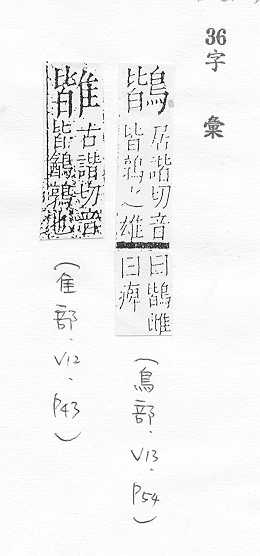 36
字彙
鶛
居諧切音
皆鶉之雄
曰鶛雌
曰痺
(鳥部.V13.P54)
古諧切音
皆鶉也
(隹部.V12.P43)